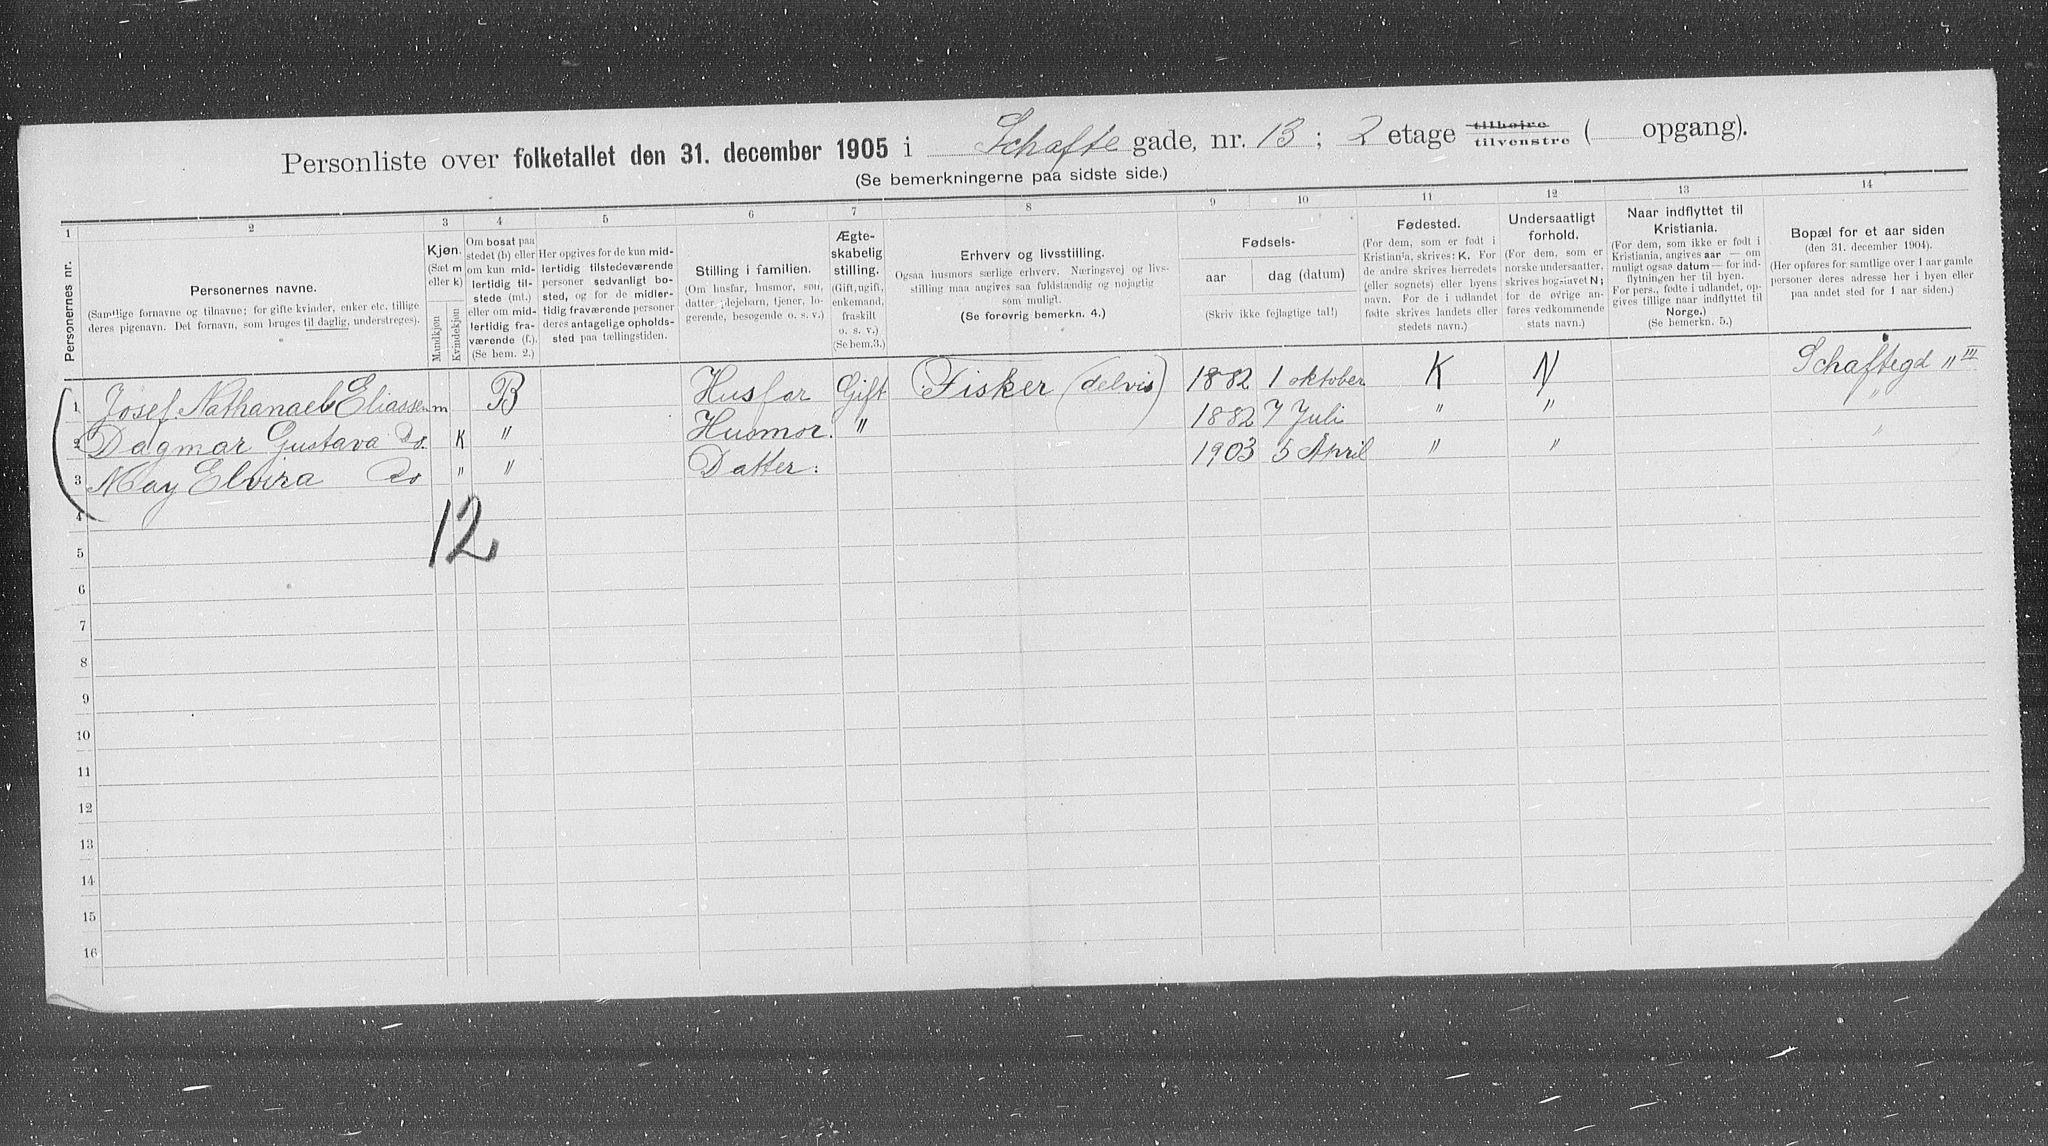 Personliste over folketallet den 31. december 1905 i Schafte gade, nr. 13; 2 etage tilhøjre tilvenstre ( opgang).
(Se bemerkningerne paa sidste side.)
1 2 3 4 5 6 7 8 9 10 11 12 13 14
Personernes nr.
Personernes navne.
(Samtlige fornavne og tilnavne; for gifte kvinder, enker etc. tillige
deres pigenavn. Det fornavn, som bruges til daglig, understreges).
Kjøn.
(Sæt m
eller k)
Mandkjøn
Kvindekjøn
Om bosat paa
stedet (b) eller
om kun mid-
lertidig til-
stede (mt.)
eller om mid-
lertidig fra-
værende (f.).
(Se bem. 2.)
Her opgives for de kun mid-
lertidig tilstedeværende
personer sedvanligt bo-
sted, og for de midler-
tidig fraværende personer
deres antagelige opholds-
sted paa tællingstiden.
Stilling i familien.
(Om husfar, husmor, søn,
datter, plejebarn, tjener, lo-
gerende, besøgende o. s. v.)
Ægte-
skabelig
stilling.
(Gift, ugift,
enkemand,
fraskilt
o. s. v.)
(Se bem.3.)
Erhverv og livsstilling.
Ogsaa husmors særlige erhverv. Næringsvej og livs-
stilling maa angives saa fuldstændig og nøjagtig
som muligt.
(Se forøvrig bemerkn. 4.)
Fødsels-
aar dag (datum)
(Skriv ikke fejlagtige tal!)
Fødested.
(For dem, som er født i
Kristiania, skrives: K. For
de andre skrives herredets
(eller sognets) eller byens
navn. For de i udlandet
fødte skrives landets eller
stedets navn.)
Undersaatligt
forhold.
(For dem, som er
norske undersaatter,
skrives bogstavet N;
for de øvrige an-
føres vedkommende
stats navn.)
Naar indflyttet til
Kristiania.
(For dem, som ikke er født i
Kristiania, angives aar — om
muligt ogsaa datum — for ind-
flytningen her til byen.
For pers., fødte i udlandet, op-
gives tillige naar indflyttet til
Norge.)
(Se bemerkn. 5.)
Bopæl for et aar siden
(den 31. december 1904).
(Her opføres for samtlige over 1 aar gamle
personer deres adresse her i byen eller
paa andet sted for 1 aar siden.)
1 Josef Nathanael Eliassen m B Husfar Gift Fisker (delvis) 1882 1 oktober K N Schaftegd " III
2 Dagmar Gustava Do. K " Husmor. " 1882 7 Juli " " "
3 May Elvira Do " " Datter. 1903 5 April " " "
4
12
5
6
7
8
9
10
11
12
13
14
15
16